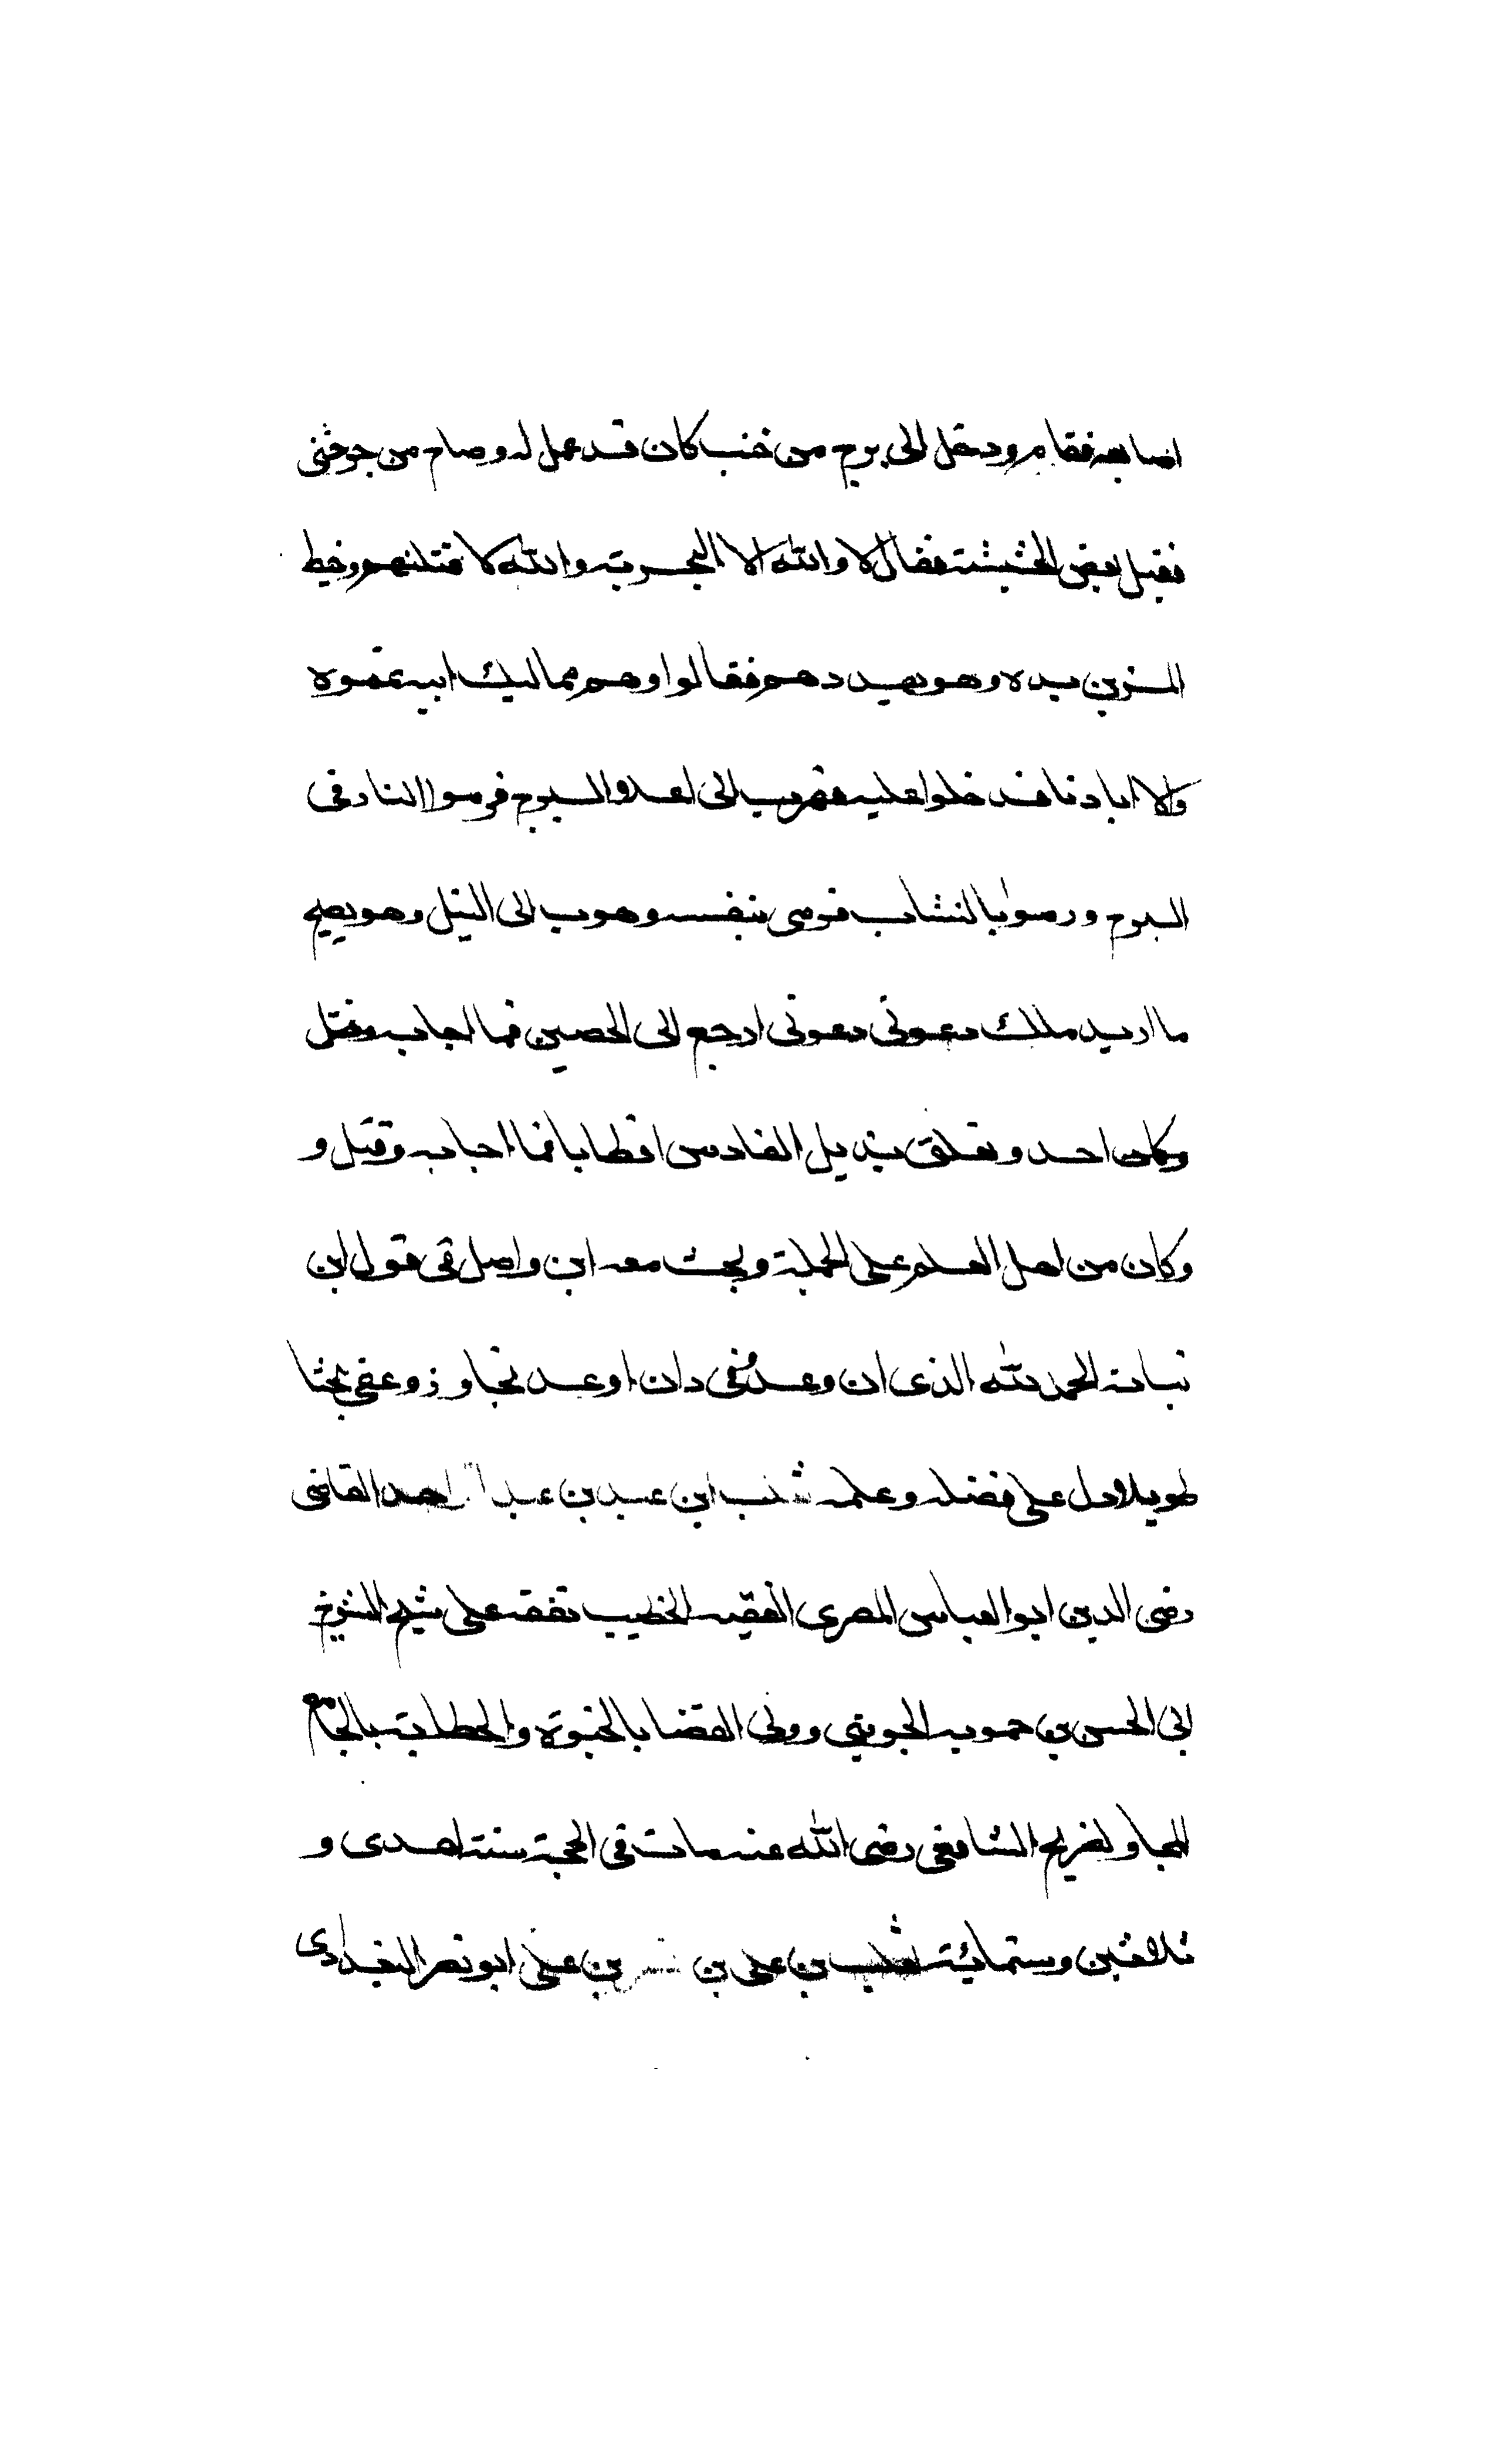 اصابعه فقام ودخل الى برج من خشب كان قد عمل له وصاح من جرحنى
فقيل بعض الحشيشة فقال لا والله الا البحرية والله لا قتلنهم وخيط
المزين يده وهو يهددهم فقالوا وهم مماليك ابيه تمموه
والا ابادنا فدخلوا عليه فهرب الى اعلا والبرج فرموا النار فى
البرج ورموا بالنشاب فرمى بنفسه وهرب الى النيل وهو يصيح
ما اريد ملك دعونى دعونى ارجع الى الحصين فما اجابه فقتل
وكان احد وتعلق بذيل الفارس اقطايا فما اجابه وقتل و
وكان من اهل العلم على الجملة وبحث معه ابن واصل فى قول ابن
نباتة الحمد لله الذى ان وعد وفى وان اوعد تجاوز وعفى بحثا
طويلا دل على فضله وعلمه ثعلب ابن عبد بن عبد احد القاضى
رضى الدين ابو العباس المصرى الفقيه الخطيب تفقه على شيخ الشيوخ
ابى الحسن بن حمويه الجوينى وولى القضا بالجيزة والخطابة بالجامع
المجاو لضريح الشافعى رضى الله عنه مات فى الحجة سنة احدى و
ثلاثين وستمائة ثعلب بن على بن نصر بن على ابو نصر البغدادى